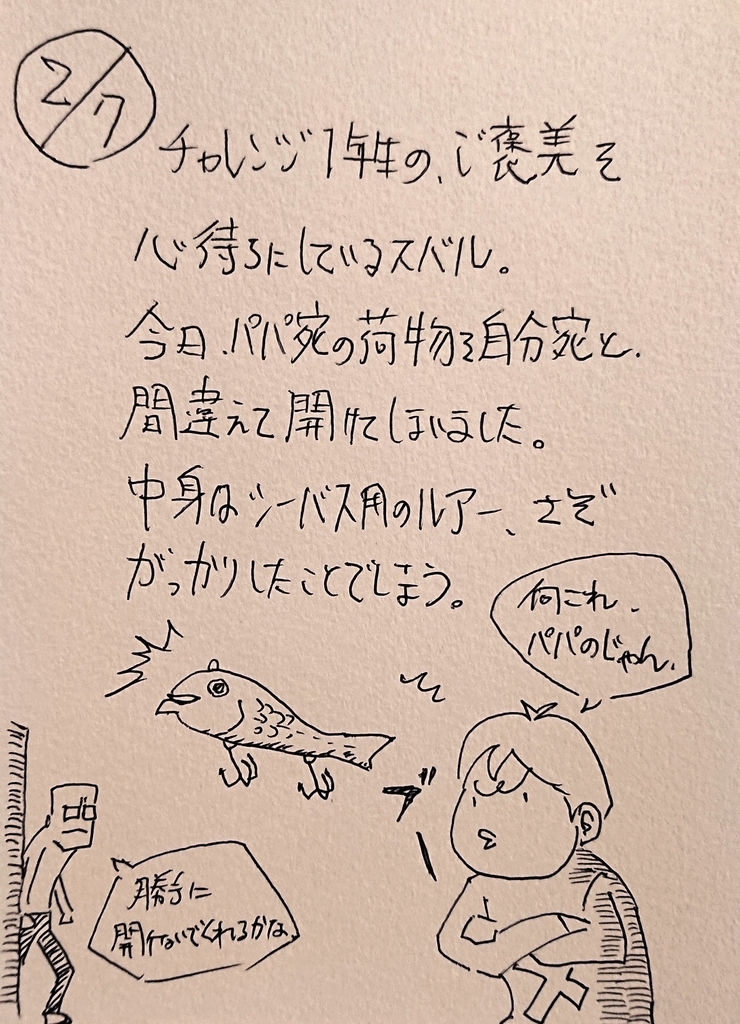 2/7
チャレンジ1年生の、ご褒美を
心待ちにしているスバル。
今日、パパ宛の荷物を自分宛と、
間違えて開けてしまいました。
中身はシーバス用のルアー、さぞ
がっかりしたことでしょう。
何これ、
パパのじゃん、
勝手に
開けないでくれるかな